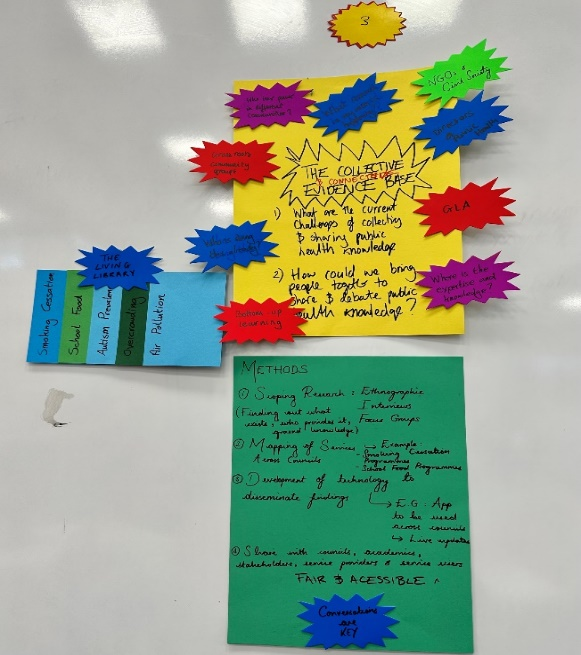 3
NGOs &
Civil Society
THE COLLECTIVE
& CONNECTED
EVIDENCE BASE
1) What are the current
challenges of collecting
& sharing public
health knowledge
2) How could we bring
people together to
share & debate public
health knowledge?
GLA
Where is the
expertise and
knowledge?
Bottom up
learning
community
groups
THE
LIVING
LIBRARY
Smoking Cessation
School Food
Autism Prevalence
Overcrowding
Air Pollution
METHODS
① Scoping Research : Ethnographic
Interviews
(Finding out what
exists, who provides it, Focus Groups
ground knowledge)
② Mapping of Services → Example
Across Councils
· Smoking Cessation
Programmes
· School Food Programmes
③ Development of technology to
disseminate findings
→ E.G: App
to be used
across councils
↳ Live updates
④ Share with councils, academics,
stakeholders, service providers & service users
FAIR & ACESSIBLE
Conversations
are
KEY